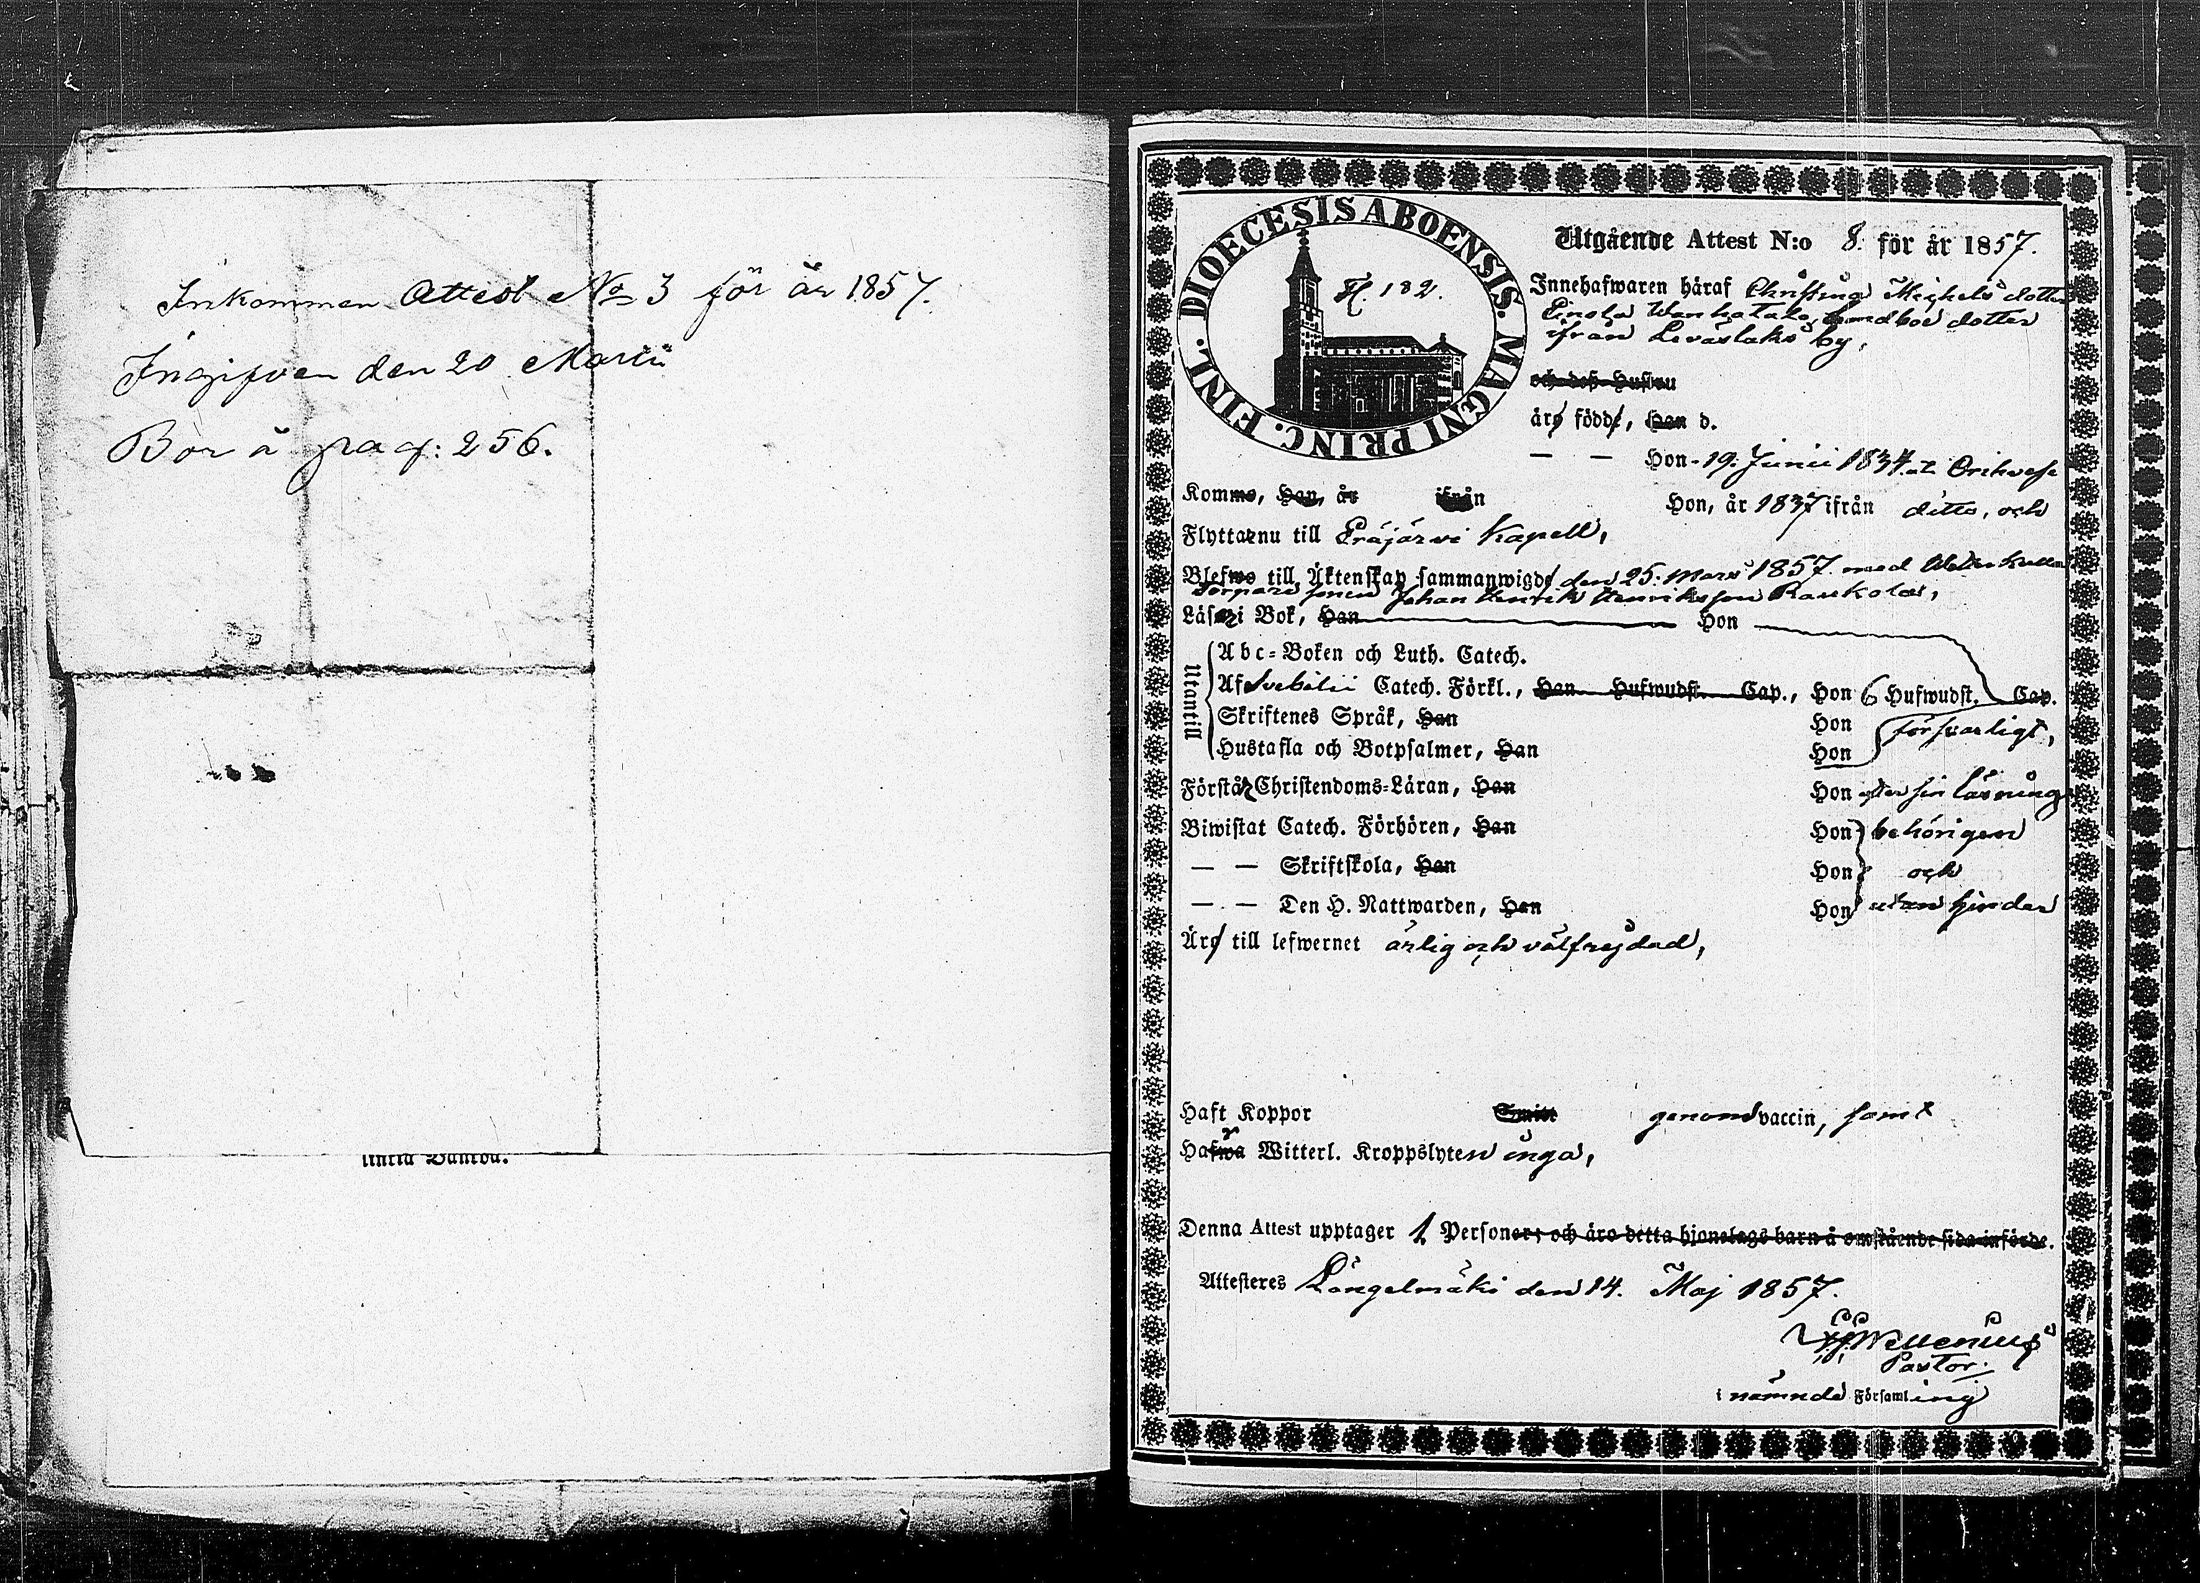 Inkommen Attest No 3 för år 1857.
Ingifven den 20 Martii
Bor å pag: 256.
DIOECESIS ABOENSIS. MAGNI PRINC. FINL.
N. 182.
Utgående Attest N:o 8. för år 1857.
Innehafwaren häraf Christina Michelsdotter
Einola Wanhatalo, landbod dotter
ifrån Leväslaks by,
och deß Hustru
äro födde, Han d.
— — Hon 19. Junii 1834. at Orihvesi
Komne, Han, år ifrån Hon, år 1837 ifrån ditto, och
Flyttar nu till Eräjärvi Kapell,
Blefwo till Äktenskap sammanwigde den 25. Mars 1857. med
Torpare sonen Johan Henrik Henriksson Raukola,
Läser i Bok, Han Hon
Utantill
Abc-Boken och Luth. Catech.
Af Svebilii Catech. Förkl., Han Hufwudst. Cap., Hon 6 Hufwudst. Cap.
Skriftenes Språk, Han Hon försvarligt,
Hustafla och Botpsalmer, Han Hon
Förstår Christendoms-Läran, Han Hon efter sin läsning
Biwistat Catech. Förhören, Han Hon behörigen
— — Skriftskola, Han Hon och
— — Den H. Nattwarden, Han Hon utan hinder
Äro till lefwernet ärlig och välfrejdad,
Haft Koppor Smitt genom vaccin, samt
Hafwa Witterl. Kroppslyten inga,
Denna Attest upptager 1. Personer; och äro detta hjonelags barn å omstående sida införde.
Attesteres Längelmäki den 14. Maj 1857.
Pastor.
i nämnde Församling